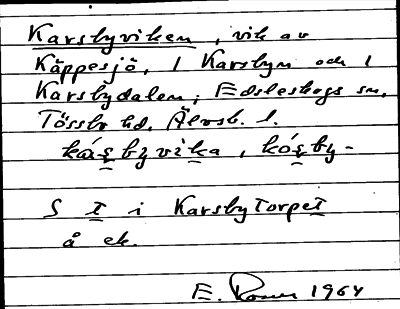 Karsbyviken, vik av
Käppesjö, 1 Karsbyn och 1
Karsbydalen; Edsleskogs sn,
Tössbo hd, Älvsb. l.
káʂbyvika, kóʂby-
S t i KarsbyTorpet
å ek.
E. 1964